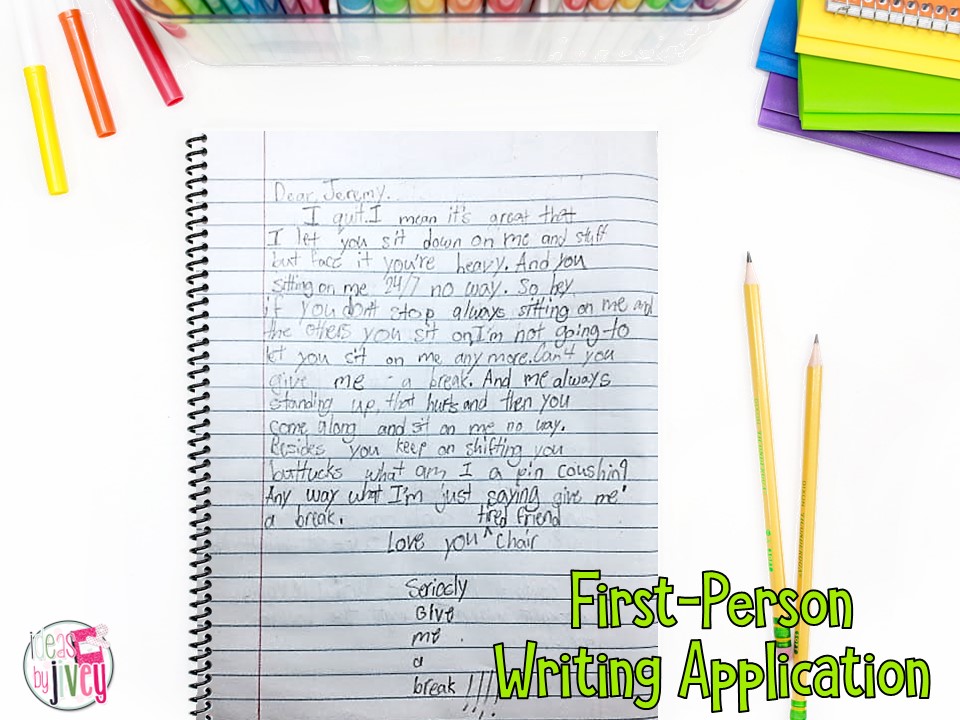 Dear, Jeremy.
I quit. I mean it's great that
I let you sit down on me and stuff
but face it you're heavy. And you
sitting on me 24/7 no way. So hey
if you don't stop always sitting on me and
the others you sit on, I'm not going to
let you sit on me any more. Can't you
give me a break. And me always
standing up, that hurts and then you
come along and sit on me no way.
Besides you keep on shifting you
buttucks what am I a pin coushing
Any way what I'm just saying give me
a break.
tired friend
Love you ^ Chair
Seriosly
Give
me
a
break !!!!
First-Person
Writing Application
ideas
by jivey